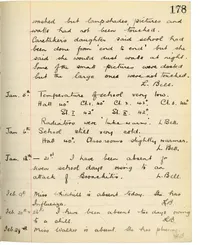 178
washed but lampshades, pictures and
walls had not been touched.
Caretaker's daughter said school had
been done from end to end but she
said she would dust walls at night.
Some of the small pictures were dusted
but the large ones were not touched.
L. Bell.
Jan. 5th Temperature of school very low.
Hall 40°. Cl. 40° Cl. 2. 40°. Cl. 40°
St. I 40° St. II. 40°.
Radiators were luke-warm. L. Bell
Jan. 6th School still very cold.
Hall 40°. Classrooms slightly warmer.
L. Bell.
I have been absent for
school days owing to an
attack of Bronchitis. L. Bell
Feb. Miss is absent today. She has
Influenza. L.B.
Feb. I have been absent two days owing
to a chill. L.B.
Feb. Miss Walker is absent. She has